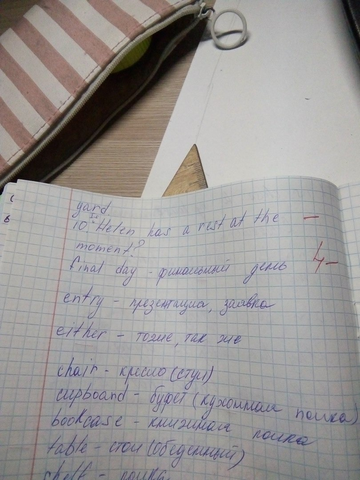 yard
10. Is Helen has a rest at the
moment?
final day - финальный день
4-
entry - презентация, заявка
either - тоже, так же
chair - кресло (стул)
cupboard - буфет (кухонная полка)
bookcase - книжная полка
table - стол (обеденный)
shelf - полка